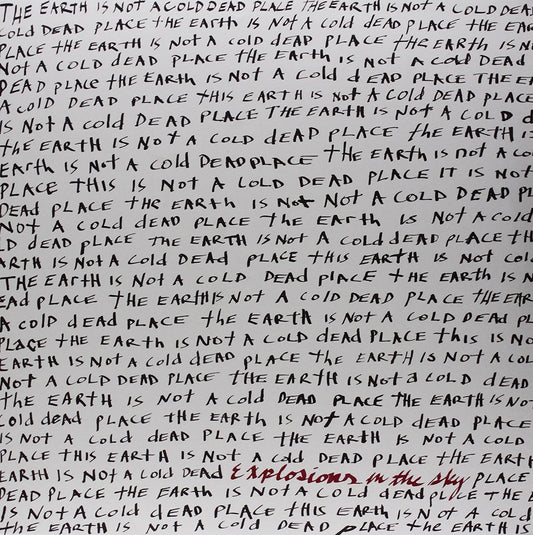 THE EARTH IS NOT A COLD DEAD PLACE THE EARTH IS NOT A COLD DEAD
COLD DEAD PLACE THE EARTH IS NOT A COLD DEAD PLACE THE EARTH
PLACE THE EARTH IS NOT A COLD DEAD PLACE THE EARTH IS N
NOT A COLD DEAD PLACE THE EARTH IS NOT A COLD DEAD
DEAD PLACE THE EARTH IS NOT A COLD dEAD PLACE THE EA
A COLD DEAD PLACE THIS EARTH IS NOT A COLD DEAD PLACE
IS NOT A Cold DEAD PLACE THE EARTH IS NOT A COLD d
the EARTH IS NOT A COLD DEAD PLACE the EARTH IS
EARTH IS NOT A Cold DEAD PLACE THE EARTH IS NOT A CO
PLACE THIS IS NOT A COLD DEAD PLACE IT IS NOT
DEAD PLACE THE EARTH IS NOT NOT A COLD DEAD PL
NOT A COLD dEAD PLACE THE EARTH IS NOT A COLD
LD DEAD PLACE THE EARTH IS NOT A COLD DEAD PLACE TH
ARTH IS NOT A COLD DEAD PLACE THIS EARTH IS NOT COL
THE EARTH IS NOT A COLD DEAD PLACE THE EARTH IS N
EAD PLACE THE EARTH IS NOT A COLD DEAD PLACE THE EAR
A COLD dEAD PLACE THE EARTH IS NOT A COLD DEAD PL
PLACE THE EARTH IS NOT A COLD DEAD PLACE this IS NO
EARTH IS NOT A COLD DEAD PLACE the EARTH IS NOT A COL
NOT A COLD DEAD PLACE THE EARTH IS NOT A COLD DEAD
the EARTH IS NOT A COLD DEAD PLACE THE EARTH IS NOT
Cold dead PLACE THE EARTH IS NOT A COLD DEAD PLACE
IS NOT A COLD dEAD PLACE THE EARTH IS NOT A COLD
PLACE THIS EARTH IS NOT A COLD DEAD PLACE THE EARTH
EARTH IS NOT A Cold DEAD Explosions in the sky PLACE
DEAD PLACE THE EARTH IS NOT A COLD dEAd place THE E
IS NOT A COLD DEAD PLACE THIS EARTH IS NOT A COLD
the EARTH IS NOT A COLD DEAD PLACE THE EARTH IS